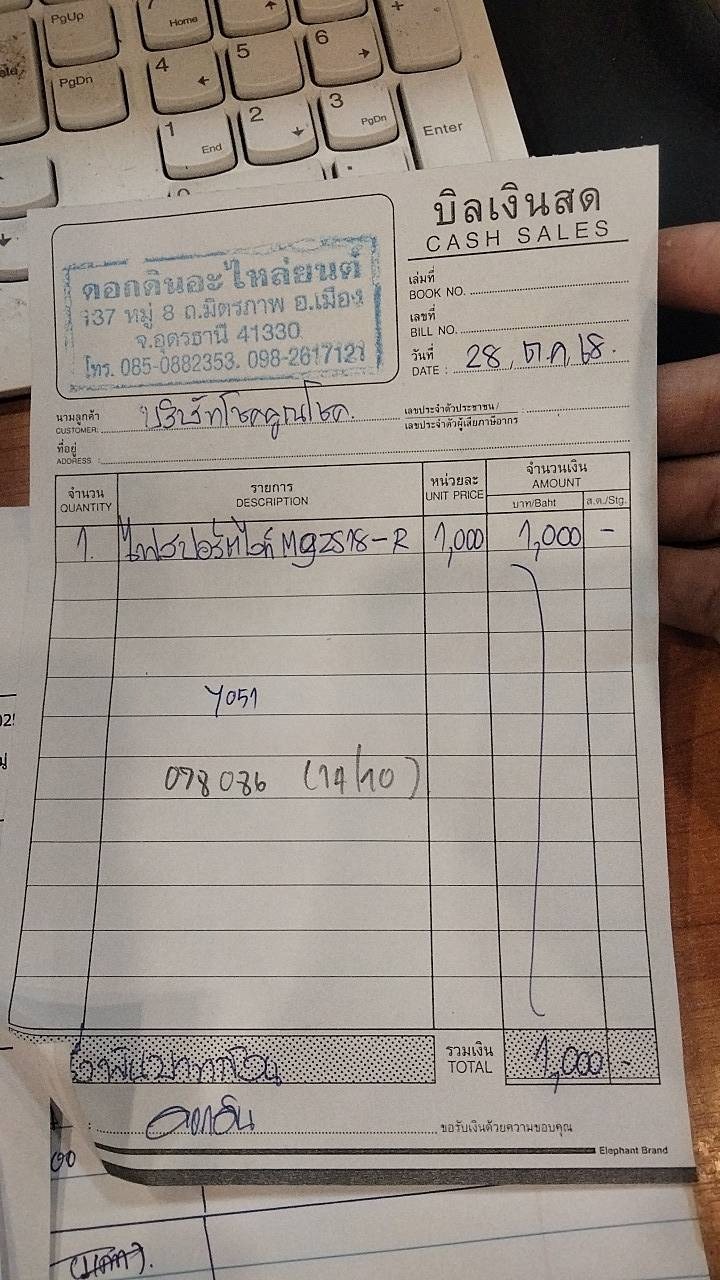 PgUp
Home
6
PgDn
4
5
1
End
2
3
PgDn
Enter
บิลเงินสด
CASH SALES
ดอกดินอะไหล่ยนต์
137 หมู่ 8 ถ.มิตรภาพ อ.เมือง
จ.อุดรธานี 41330
โทร. 085-0882353. 098-2617121
เล่มที่
BOOK NO.
เลขที่
BILL NO.
วันที่
DATE : 28, ต.ค, 68.
นามลูกค้า
CUSTOMER: บริษัทโชคคูณโชค.
เลขประจำตัวประชาชน/
เลขประจำตัวผู้เสียภาษีอากร :
ที่อยู่
ADDRESS :
จำนวน รายการ หน่วยละ จำนวนเงิน
QUANTITY DESCRIPTION UNIT PRICE AMOUNT
บาท/Baht ส.ต./Stg.
1. ไฟสปอร์ตไลท์ Mg2518-R 1,000 1,000 -
Y051
078036 (14/10)
รวมเงิน
TOTAL 1,000 -
หนึ่งพันบาทถ้วน
ดอกดิน
ขอรับเงินด้วยความขอบคุณ
Elephant Brand